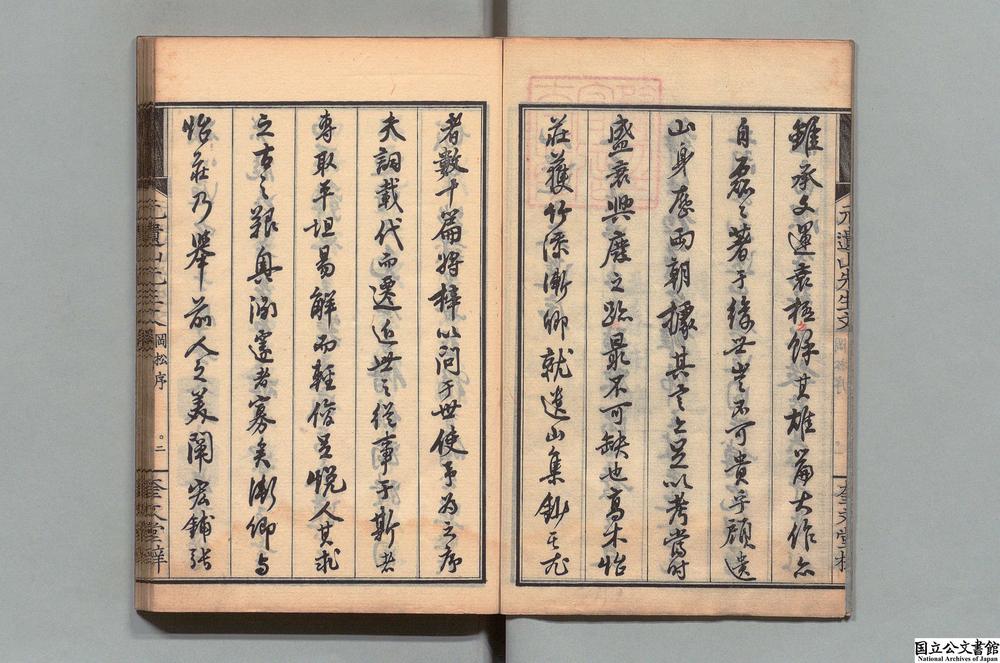 雖承文運衰極餘其雄篇大作亦
自磊々著于後世豈不可貴乎顧遺
山身歷兩朝據其言亦足以考當時
盛衰興廢之跡最不可缺也高木怡
莊獲竹添漸卿就遺山集鈔其尤
者數十篇將梓以問于世使予為之序
夫詞載代而遷近世之從事于斯者
專取平坦易解而輕俊足悅人其求
之古之艱奧淵邃者寡矣漸卿与
怡莊乃舉前人之美闡宏鋪張
元遺山先生文
奎文堂
岡松序
二
奎文堂梓
国立公文書館
National Archives of Japan